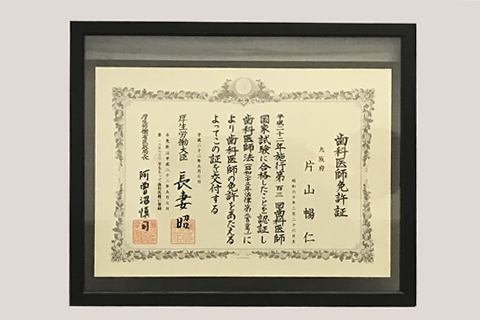 歯科医師免許証
大阪府
片山暢仁
平成二十二年施行第百三回歯科医師
国家試験に合格したことを認証し
歯科医師法(昭和二十三年法律第二百二号)に
より歯科医師の免許をあたえる
よってこの証を交付する
厚生労働大臣 長妻昭
厚生労働省医政局長 阿曽沼慎司